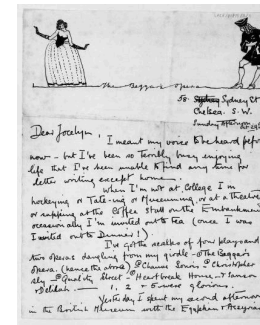 The Beggar's Opera
58. Sydney St
Chelsea. S.W.
Sunday afternoon
Dear Jocelyn,
I meant my voice to be heard before
now - but I've been so terribly busy enjoying
life that I've been unable to find any time for
letter writing except home.
When I'm not at College I'm
hockeying or Tate-ing or Museuming, or at a theatre
or supping at the Coffee Stall on the Embankment
occasionally I'm invited out to tea (once I was
Invited out to Dinner!).
I've got the scalps of four plays and
two operas dangling from my girdle - The Beggar's
Opera. (hence the above) Chauve Souris Christopher
Sly Quality Street - Heartbreak House, & Samson
& Delilah. — 1, 2 & 5 were glorious.
Yesterday I spent my second afternoon
in the British Museum with the Egyptian & Assyrian